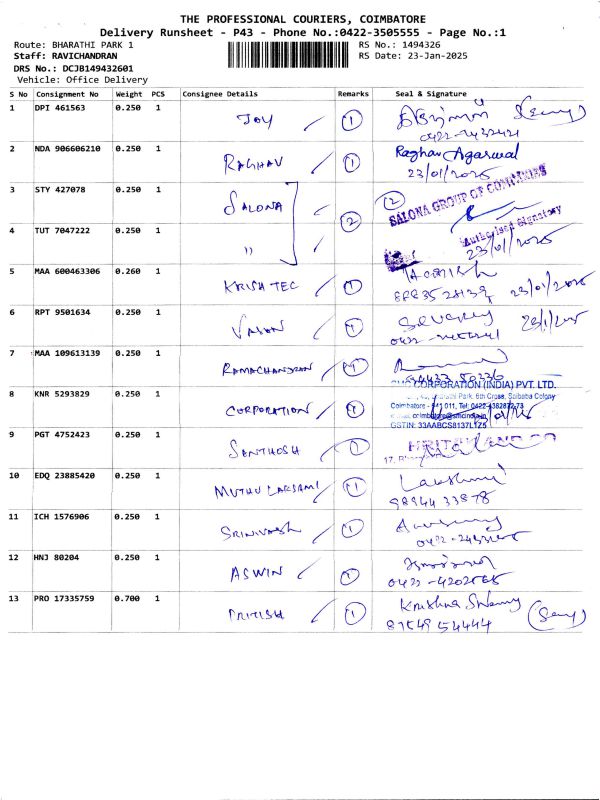 THE PROFESSIONAL COURIERS, COIMBATORE
Delivery Runsheet - P43 - Phone No.:0422-3505555 - Page No.:1
Route: BHARATHI PARK 1
RS No.: 1494326
Staff: RAVICHANDRAN
RS Date: 23-Jan-2025
DRS No.: DCJB149432601
Vehicle: Office Delivery
S No Consignment No Weight PCS Consignee Details Remarks Seal & Signature
1 DPI 461563 0.250 1 JOY 1
2 NDA 906606210 0.250 1 RAGHAV 1 Raghav Agarwal
23/01/2025
3 STY 427078 0.250 1 SALONA 2 2 SALONA GROUP OF COMPANIES
4 TUT 7047222 0.250 1 " Authorised Signatory
23/01/2025
5 MAA 600463306 0.260 1 KRISH TEC 1 23/01/2025
6 RPT 9501634 0.250 1 VASAN 1
7 MAA 109613139 0.250 1 RAMACHANDRAN 1
94433 50236
8 KNR 5293829 0.250 1 CORPORATION 1 CORPORATION (INDIA) PVT. LTD.
Bharathi Park, 6th Cross, Saibaba Colony
Coimbatore - 641 011, Tel: 0422-4382872-73
GSTIN: 33AABCS8137L1Z5
9 PGT 4752423 0.250 1 SANTHOSH 1
10 EDQ 23885420 0.250 1 MUTHU LAKSHMI 1 Lakshmi
98944 33878
11 ICH 1576906 0.250 1 SRINIVASH 1
12 HNJ 80204 0.250 1 ASWIN 1
13 PRO 17335759 0.700 1 PRITISH 1 Krishna Swamy
87549 54444